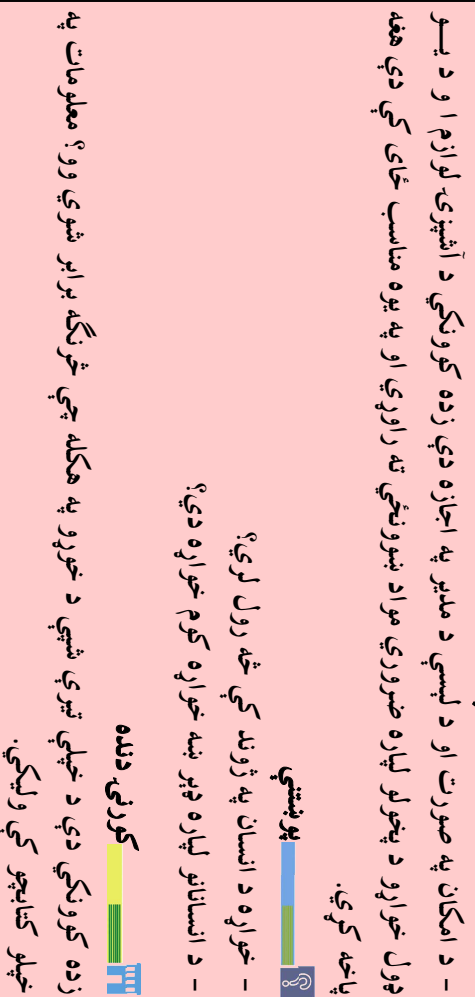 - د امکان په صورت او د لیسې د مدیر په اجازه دې زده کوونکي د آشپزۍ لوازم ا و د یـــو
ډول خوراړو د پخولو لپاره ضروري مواد ښوونځي ته راوړي او په یوه مناسب ځای کې دې هغه
پاخه کړي.
پوښتنې
- خواړه د انسان په ژوند کې څه رول لري؟
- د انسانانو لپاره ډېر ښه خواړه کوم خواړه دي؟
کورنۍ دنده
زده کوونکي دې د خپلې تېرې شپې د خوړو په هکله چې څرنګه برابر شوي وو؟ معلومات په
خپلو کتابچو کې ولیکي.